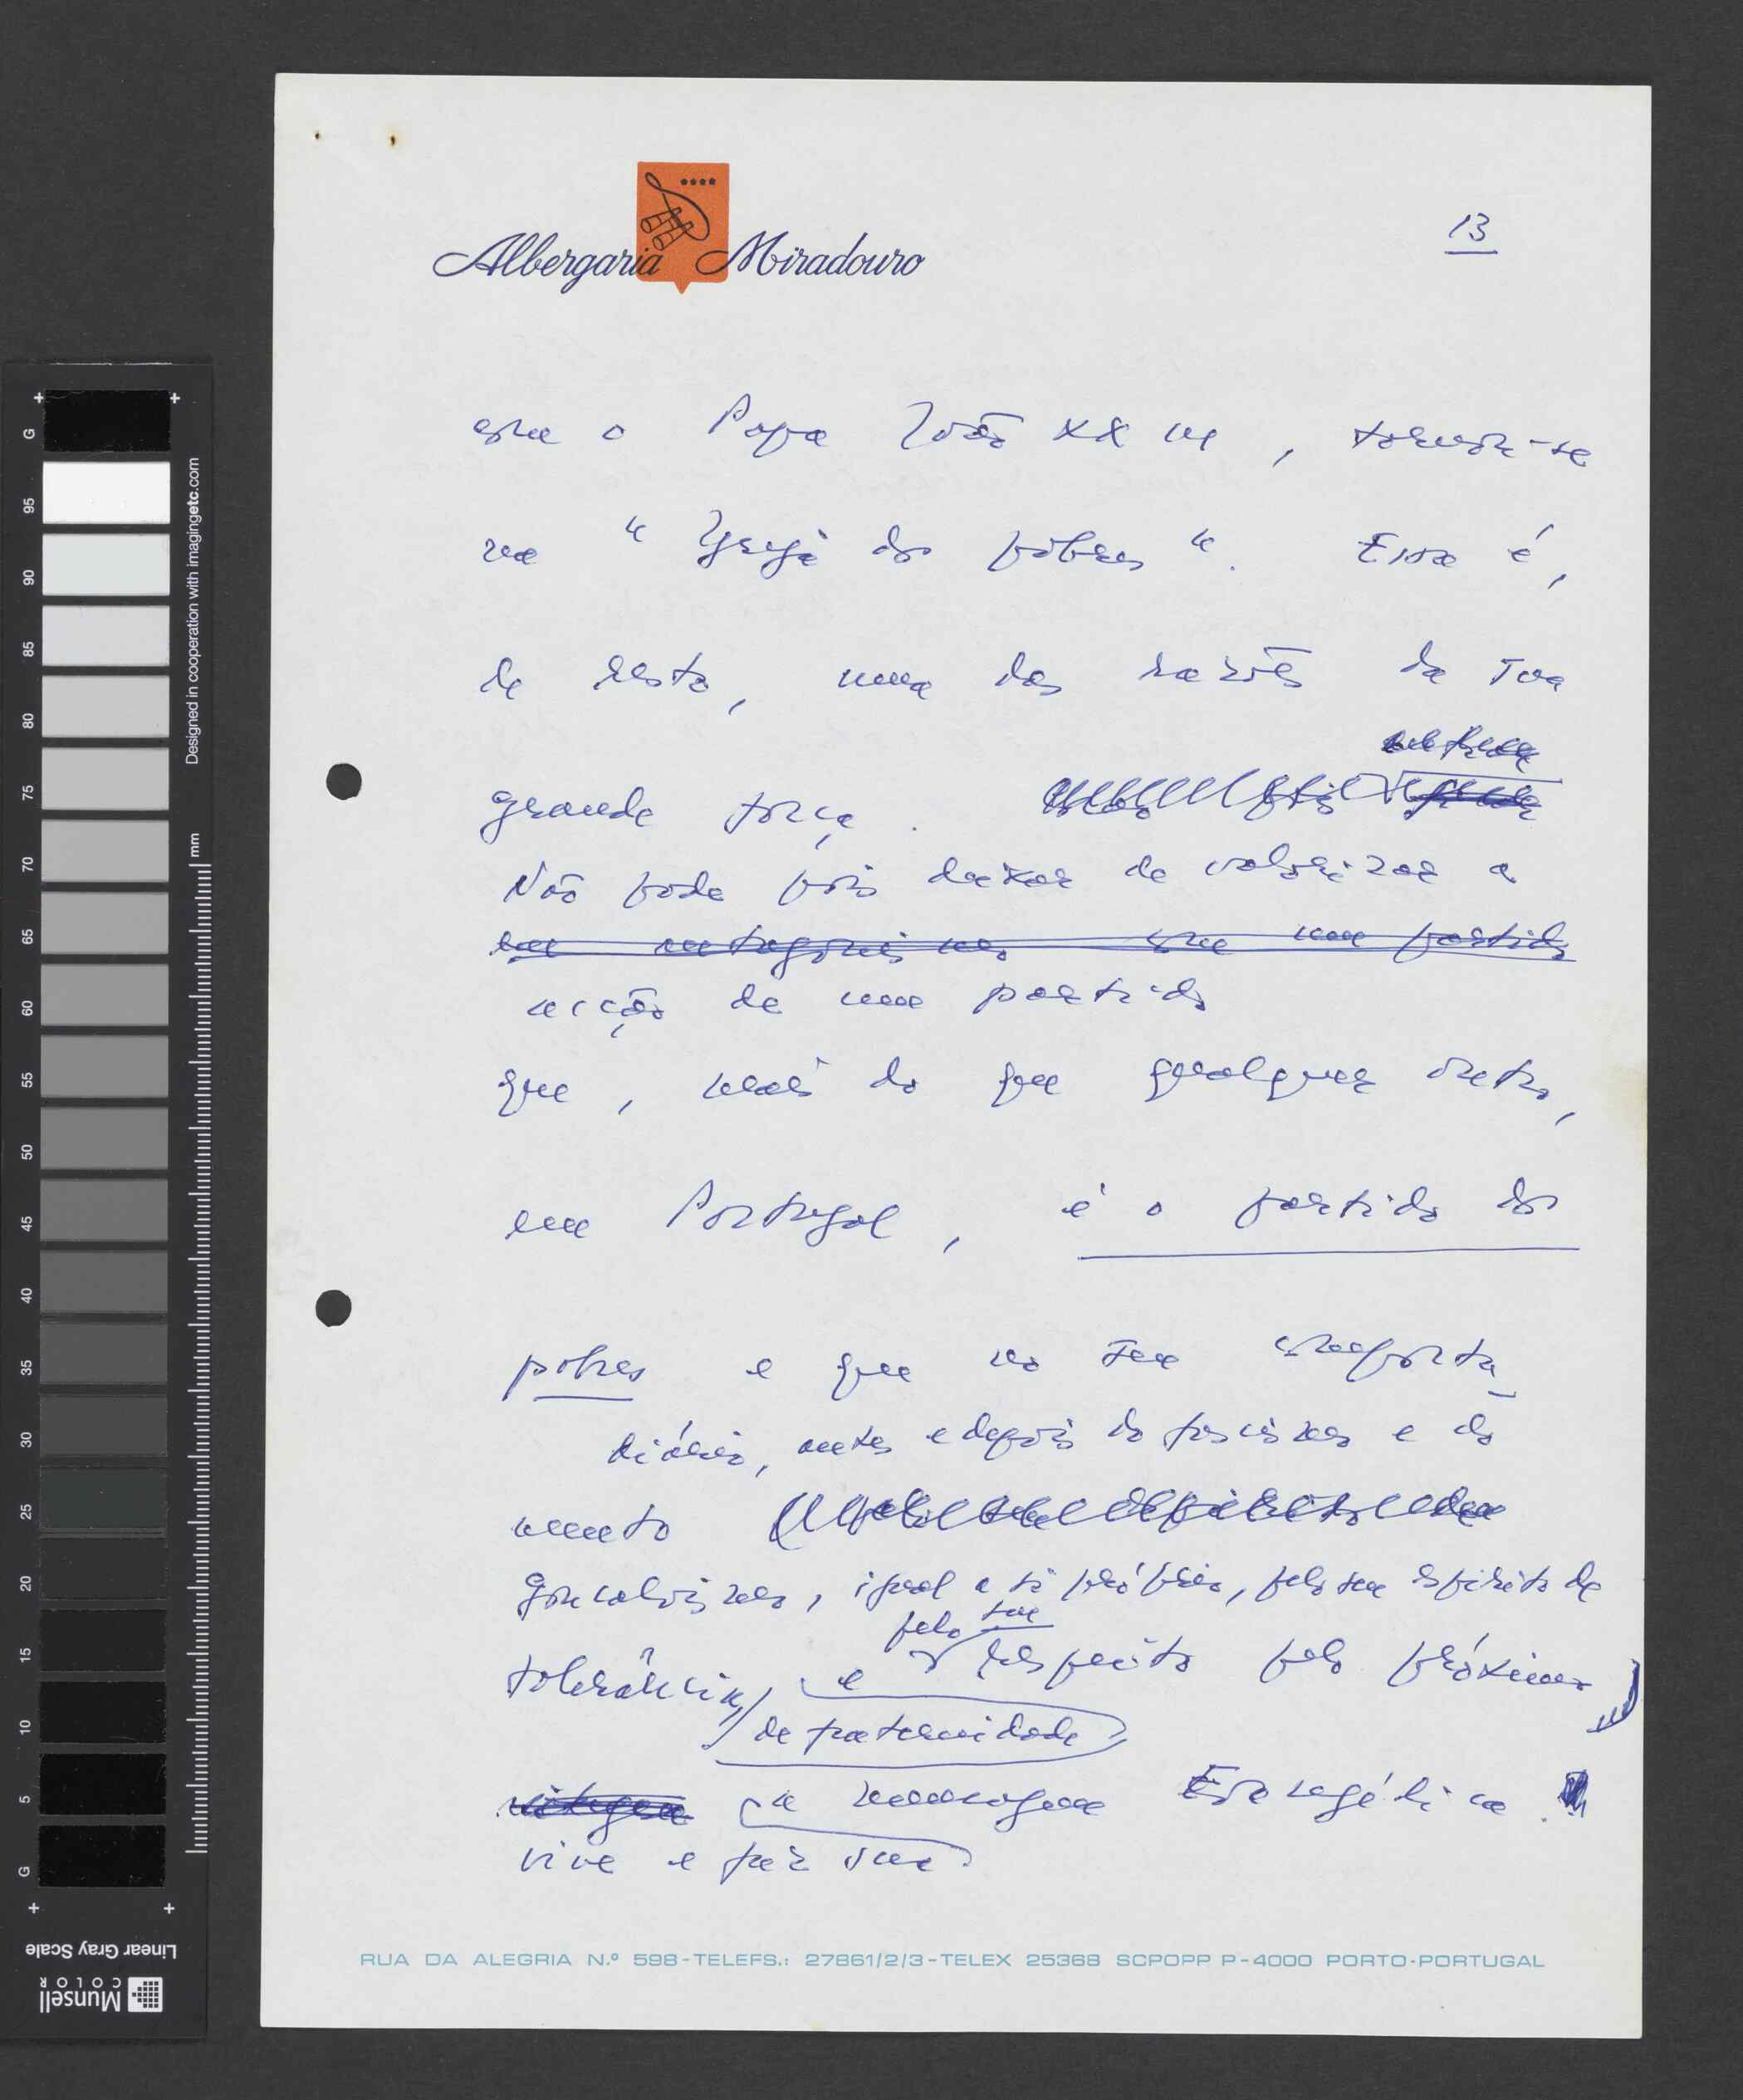 Albergaria Miradouro
13
com o Papa João XXIII, tornou-se
na "Igreja dos pobres". Essa é,
de resto, uma das razões da sua
grande força.
Não pode pois deixar de valorizar a
com um partido
acção de um partido
que, mais do que qualquer outro,
em Portugal, é o partido dos
pobres e que no seu comporta-
diário, antes e depois do fascismo e do
mento
gonçalvismo, igual a si próprio, pelo seu espírito de
pelo seu
tolerância, e respeito pelo próximo
de fraternidade
a mensagem Evangélica.
vive e faz sua
RUA DA ALEGRIA N.º 598-TELEFS.: 27861/2/3-TELEX 25368 SCPOPP P-4000 PORTO-PORTUGAL
G 95 90 85 80 75 70 65 60 55 50 45 40 35 30 25 20 15 10 5 G
Designed in cooperation with imagingetc.com
mm
Munsell COLOR
Linear Gray Scale